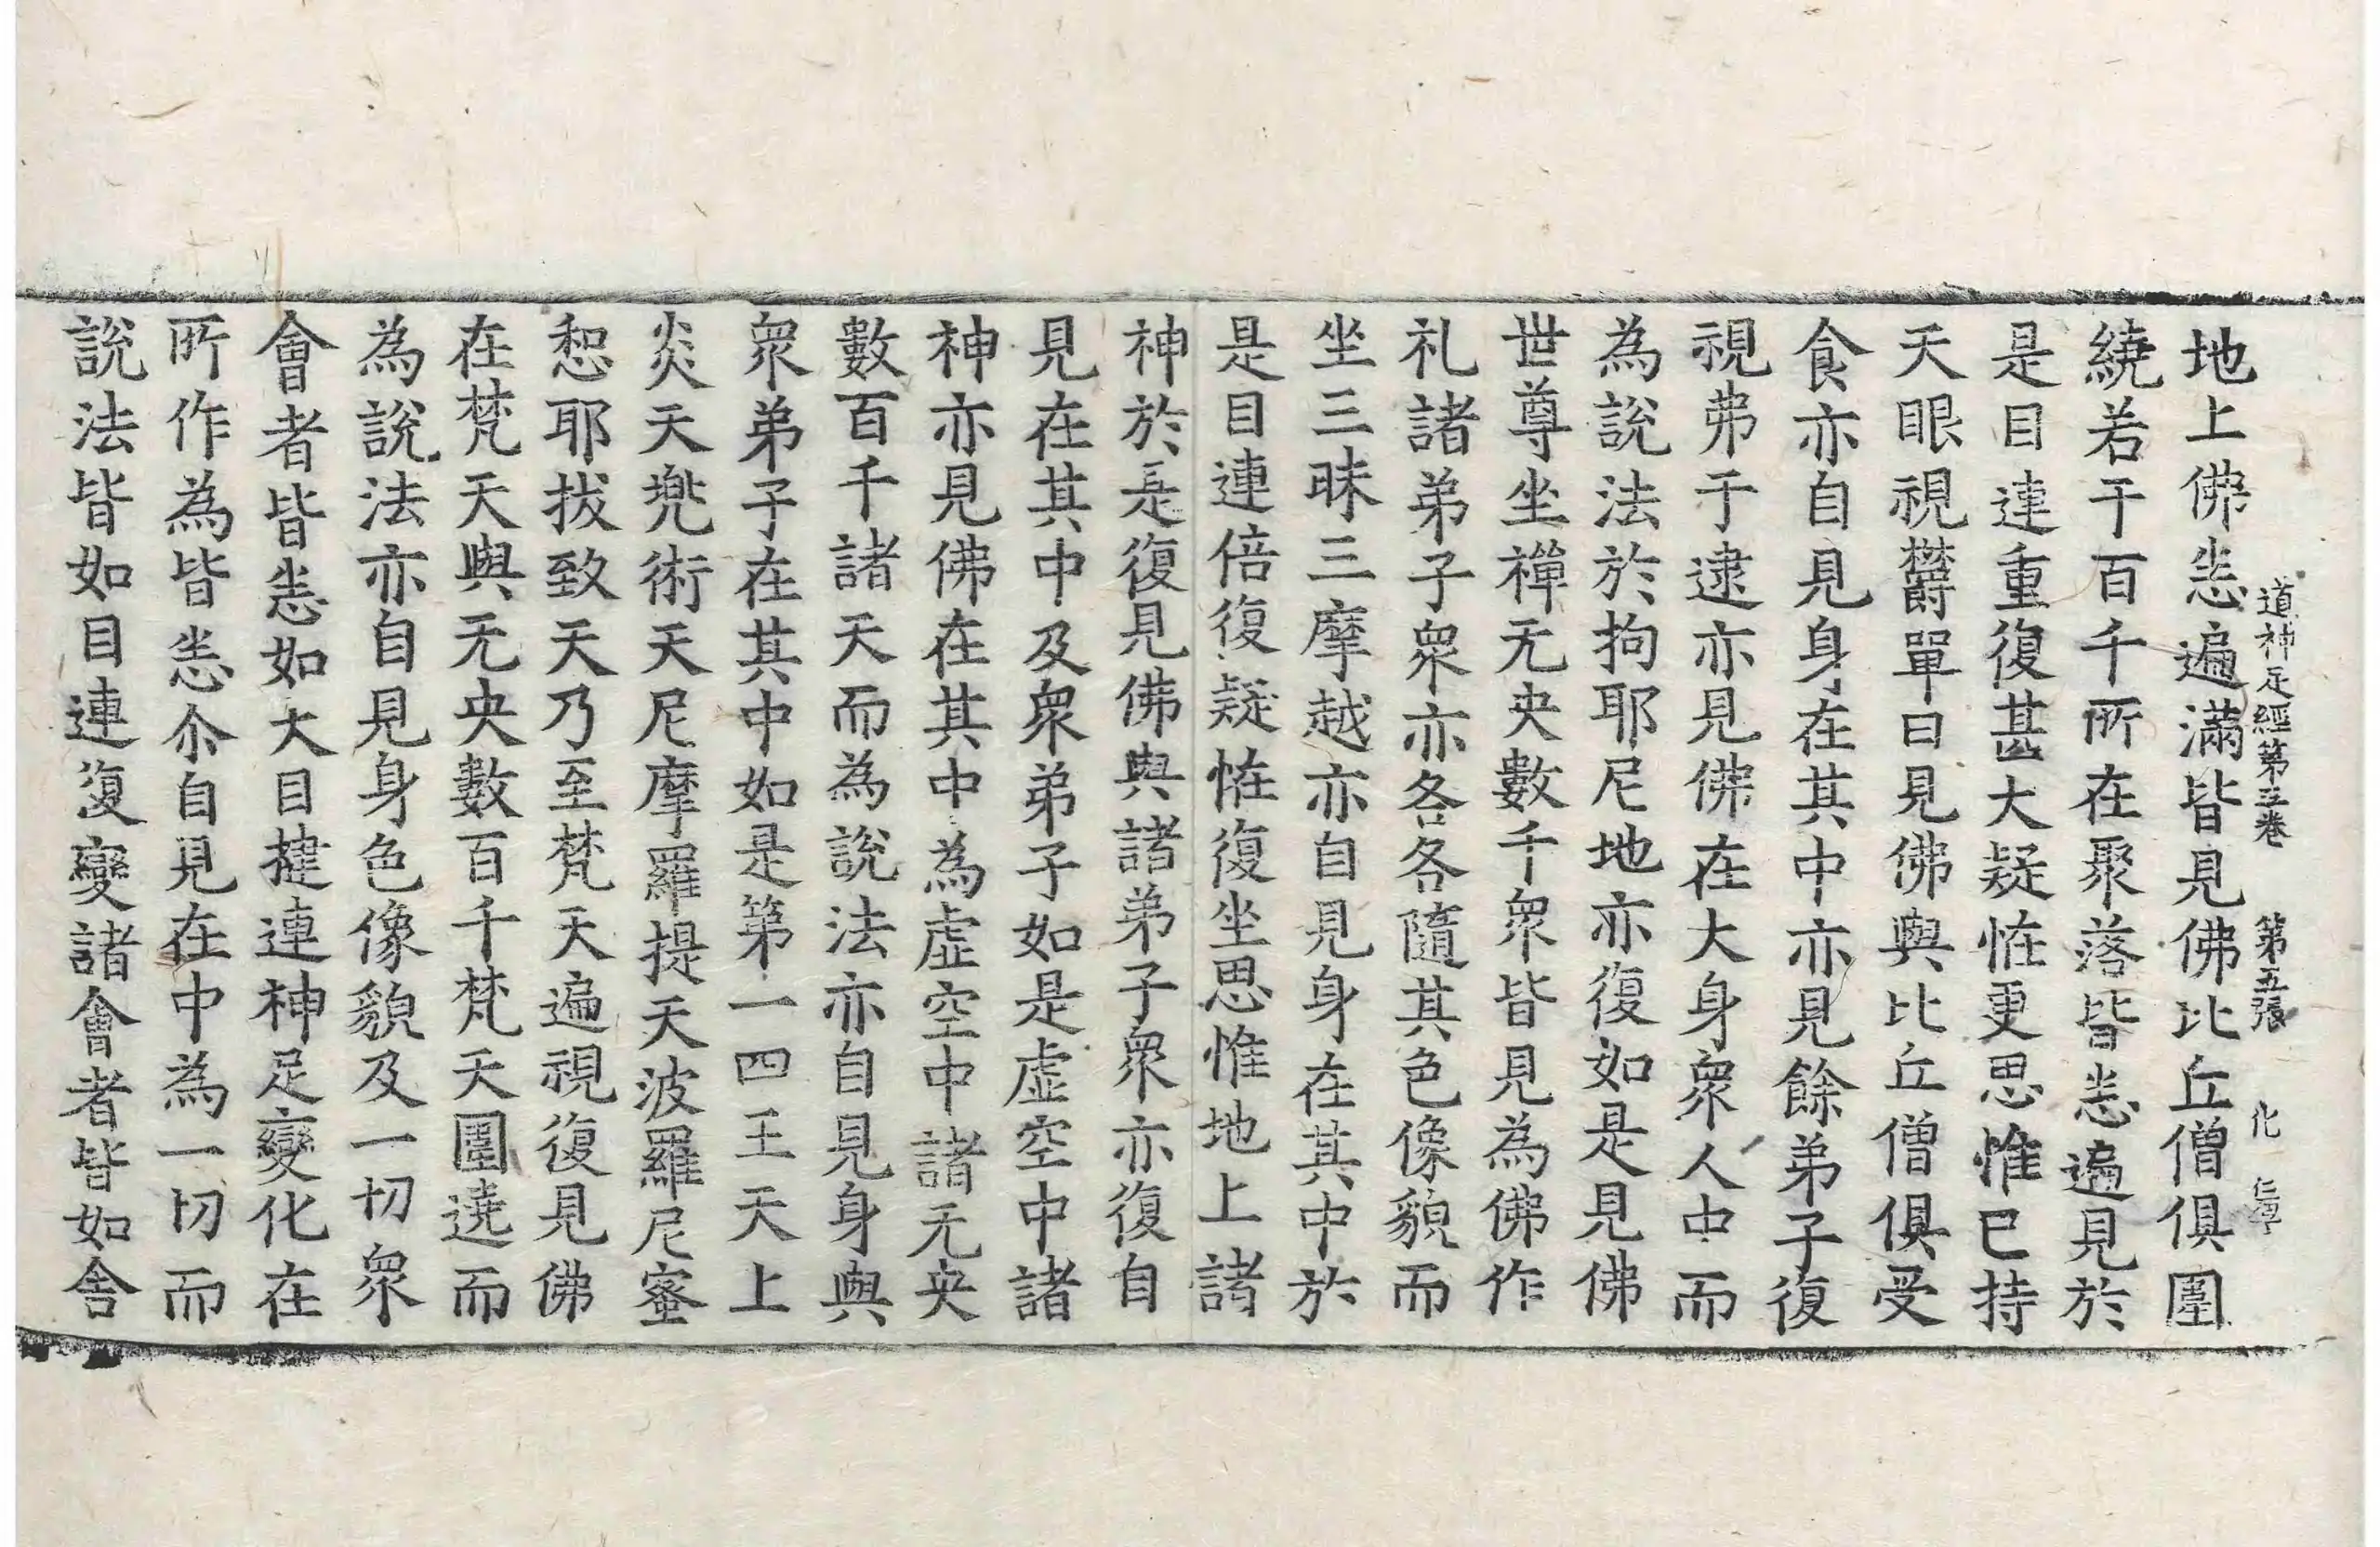 道神足經第三卷　第五張　化　仁守
地上佛恙遍滿皆見佛比丘僧俱圍
繞若干百千所在聚落皆恙遍見於
是目連重復甚大疑恠更思惟已持
天眼視欝單曰見佛與比丘僧俱受
食亦自見身在其中亦見餘弟子復
視弗于逮亦見佛在大身衆人中而
為說法於拘耶尼地亦復如是見佛
世尊坐禪无央數千衆皆見為佛作
礼諸弟子衆亦各各隨其色像貌而
坐三昧三摩越亦自見身在其中於
是目連倍復疑恠復坐思惟地上諸
神於是復見佛與諸弟子衆亦復自
見在其中及衆弟子如是虛空中諸
神亦見佛在其中為虛空中諸无央
數百千諸天而為說法亦自見身與
衆弟子在其中如是第一四王天上
炎天兠術天尼摩羅提天波羅尼蜜
恕耶拔致天乃至梵天遍視復見佛
在梵天與无央數百千梵天圍遶而
為說法亦自見身色像貌及一切衆
會者皆恙如大目揵連神足變化在
所作為皆恙尒自見在中為一切而
說法皆如目連復變諸會者皆如舍